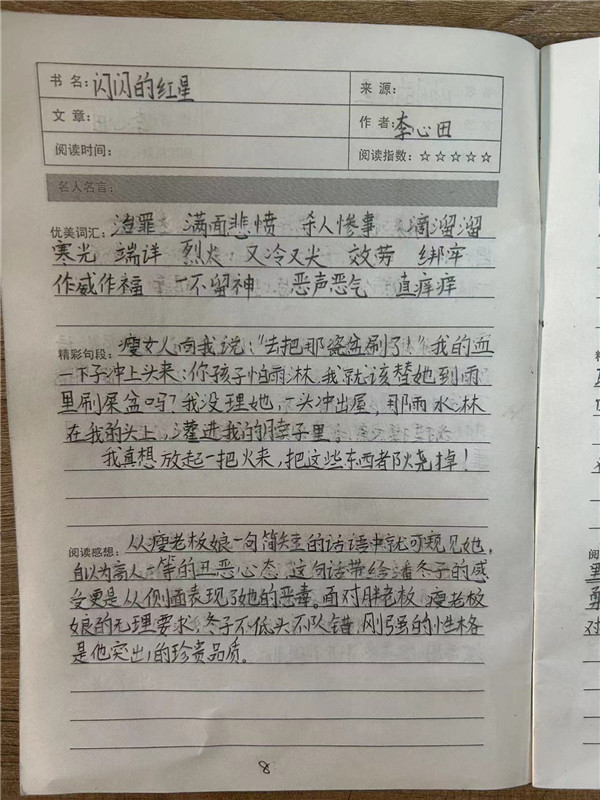 书 名: 闪闪的红星 来 源:
文 章: 作 者: 李心田
阅读时间: 阅读指数: ☆☆☆☆☆
名人名言:
优美词汇: 治罪 满面悲愤 杀人惨事 滴溜溜
寒光 端详 烈火 又冷又尖 效劳 绑牢
作威作福 一不留神 恶声恶气 直痒痒
精彩句段: 瘦女人向我说:“去把那瓷盆刷了!”我的血
一下子冲上头来:你孩子怕雨淋,我就该替她到雨
里刷屎盆吗?我没理她,一头冲出屋,那雨水淋
在我的头上,灌进我的脖子里。
我真想放起一把火来,把这些东西都烧掉!
阅读感想: 从瘦老板娘一句简短的话语中就可窥见她,
自以为高人一等的丑恶心态,这句话带给潘冬子的感
受更是从侧面表现了她的恶毒。面对胖老板、瘦老板
娘的无理要求,冬子不低头不认错,刚强的性格
是他突出的珍贵品质。
8